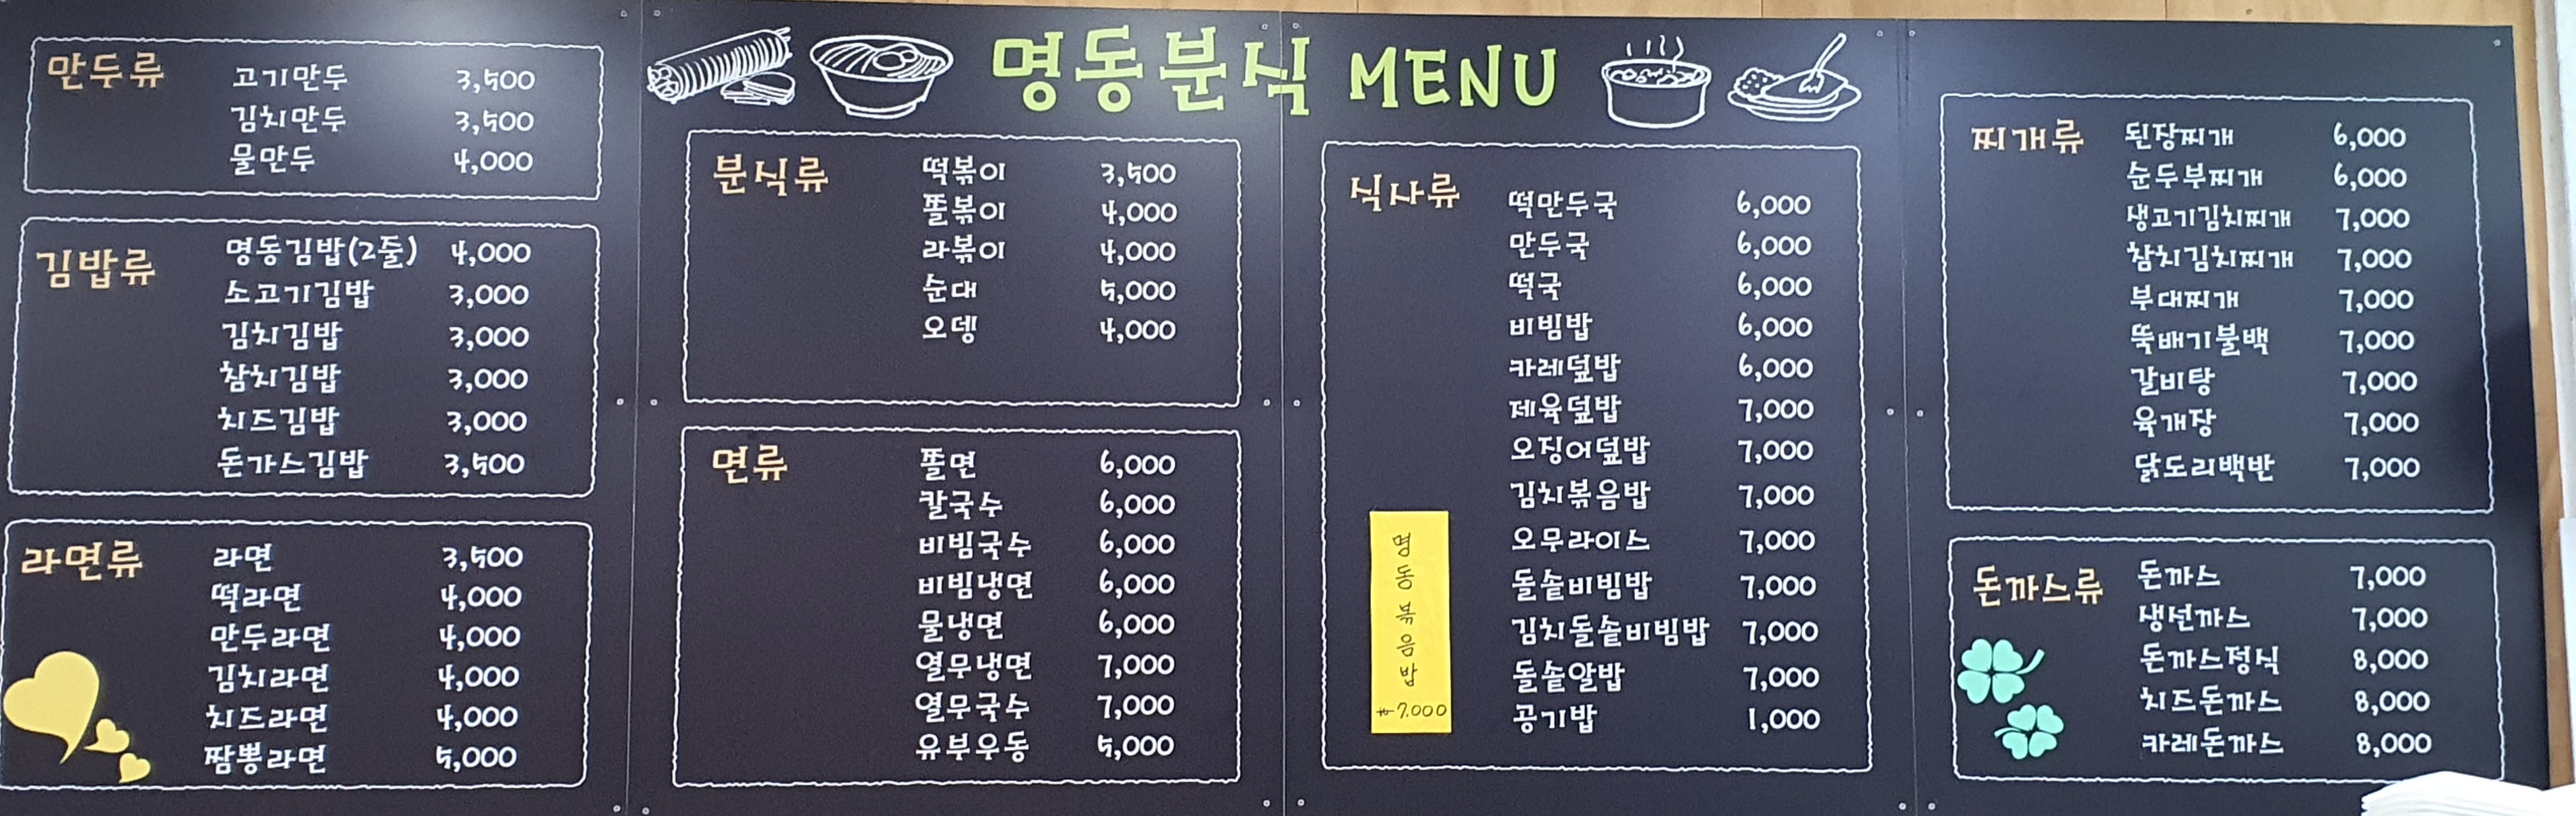 명동분식 MENU
만두류
고기만두 3,500
김치만두 3,500
물만두 4,000
김밥류
명동김밥(2줄) 4,000
소고기김밥 3,000
김치김밥 3,000
참치김밥 3,000
치즈김밥 3,000
돈가스김밥 3,500
라면류
라면 3,500
떡라면 4,000
만두라면 4,000
김치라면 4,000
치즈라면 4,000
짬뽕라면 5,000
분식류
떡볶이 3,500
쫄볶이 4,000
라볶이 4,000
순대 5,000
오뎅 4,000
면류
쫄면 6,000
칼국수 6,000
비빔국수 6,000
비빔냉면 6,000
물냉면 6,000
열무냉면 7,000
열무국수 7,000
유부우동 5,000
식사류
떡만두국 6,000
만두국 6,000
떡국 6,000
비빔밥 6,000
카레덮밥 6,000
제육덮밥 7,000
오징어덮밥 7,000
김치볶음밥 7,000
오무라이스 7,000
돌솥비빔밥 7,000
김치돌솥비빔밥 7,000
돌솥알밥 7,000
공기밥 1,000
명동볶음밥
₩7.000
찌개류
된장찌개 6,000
순두부찌개 6,000
생고기김치찌개 7,000
참치김치찌개 7,000
부대찌개 7,000
뚝배기불백 7,000
갈비탕 7,000
육개장 7,000
닭도리백반 7,000
돈까스류
돈까스 7,000
생선까스 7,000
돈까스정식 8,000
치즈돈까스 8,000
카레돈까스 8,000